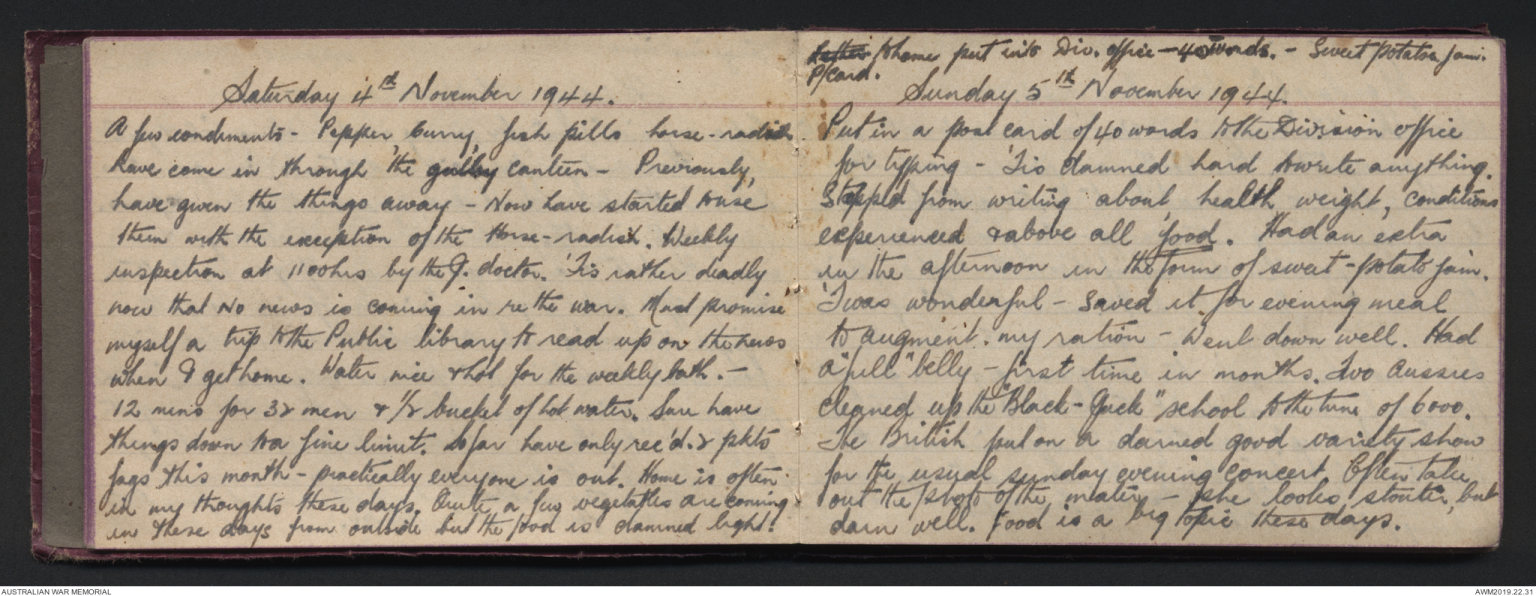 Saturday 4th November 1944.
A few condiments - Pepper, Curry, fish pills horse-radish
have come in through the canteen - Previously,
have given the things away - Now have started to use
them with the exception of the Horse-radish. Weekly
inspection at 1100hrs by the J. doctor. 'Tis rather deadly
now that no news is coming in re the war. Must promise
myself a trip to the Public library to read up on the news
when I get home. Water nice & hot for the weekly bath. -
12 mins for 32 men & 1/2 bucket of hot water. Sure have
things down to a fine limit. So far have only rec'd. 2 pkts
fags this month - practically everyone is out. Home is often
in my thoughts these days. Quite a few vegetables are coming
in these days from outside but the food is damned light!
Letter to home put into Div. office - 40 words. - Sweet potatoe jam.
P/Card.
Sunday 5th November 1944.
Put in a post card of 40 words to the Division office
for typing - 'Tis damned hard to write anything.
Stopped from writing about health, weight, conditions
experienced & above all food. Had an extra
in the afternoon in the form of sweet-potato jam.
'Twas wonderful - saved it for evening meal
to augment my ration - Went down well. Had
a "full" belly - first time in months. Two Aussies
cleaned up the "Black-Jack" school to the tune of 6000.
The British put on a darned good variety show
for the usual Sunday evening concert. Often take
out the photo of the mater - she looks stouter, but
darn well. Food is a big topic these days.
AUSTRALIAN WAR MEMORIAL
AWM2019.22.31